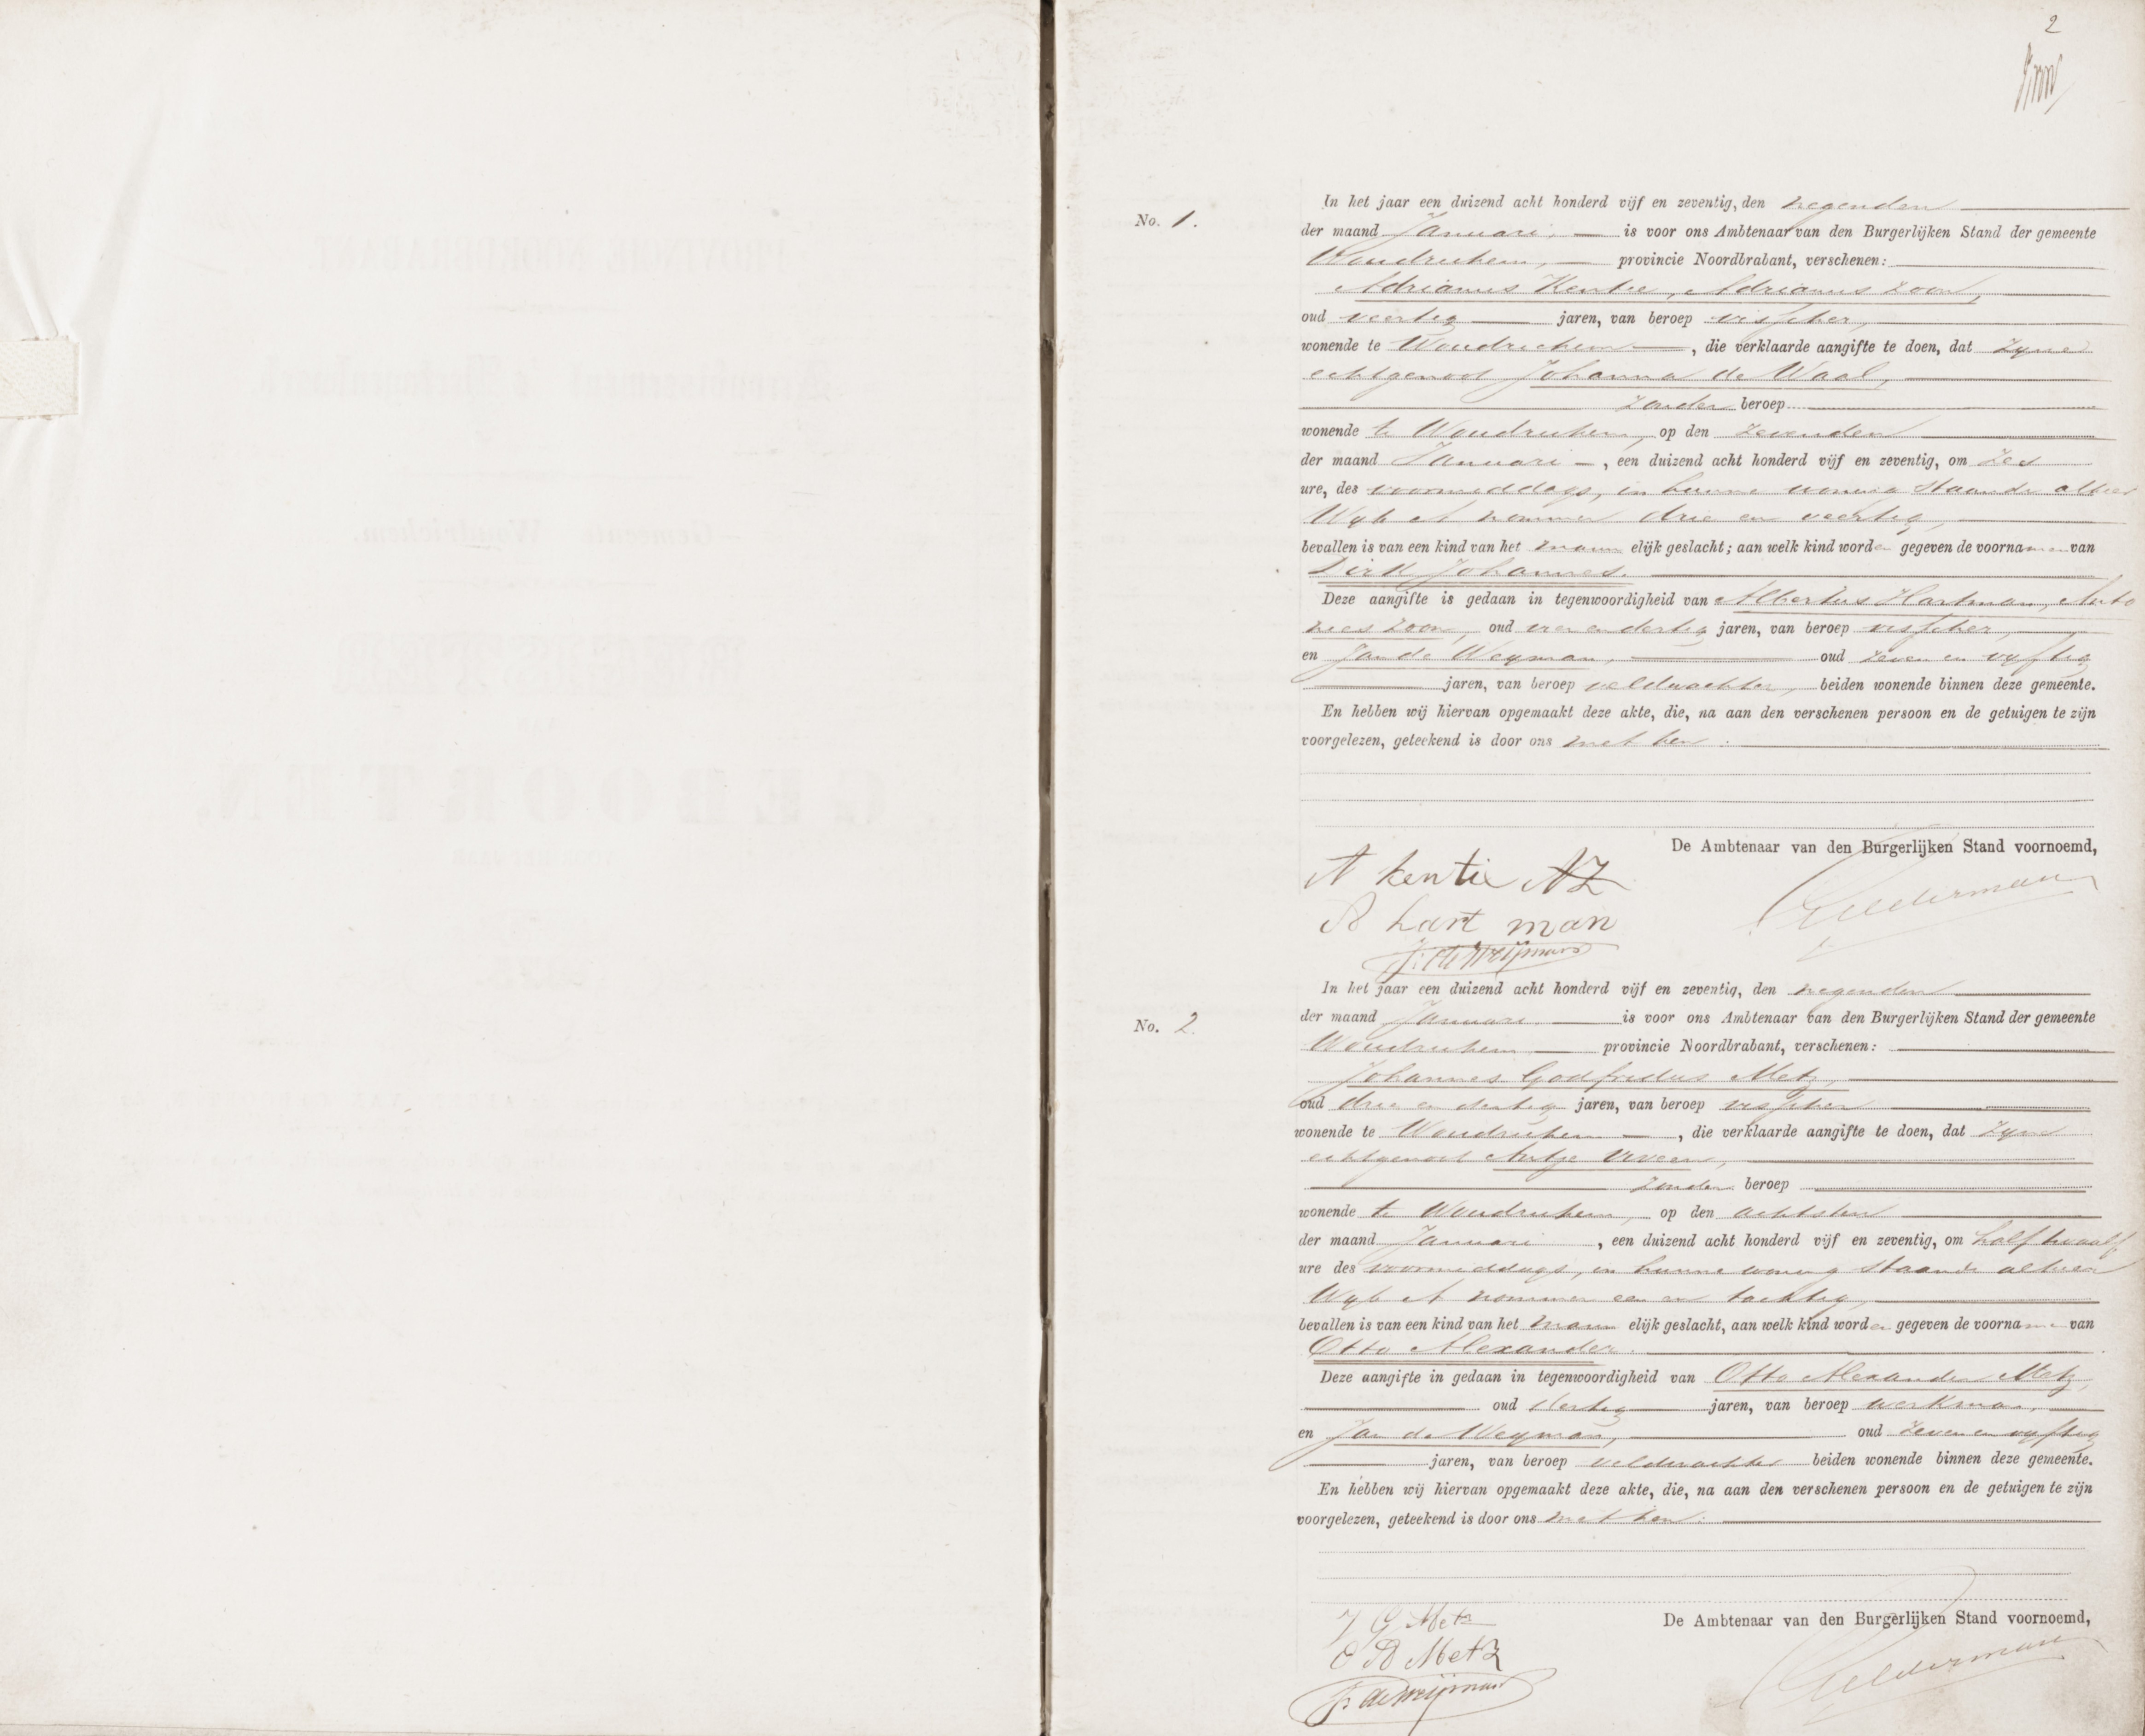 2
No. 1.
In het jaar een duizend acht honderd vijf en zeventig, den negenden
der maand Januari, is voor ons Ambtenaar van den Burgerlijken Stand der gemeente
Woudrichem, provincie Noordbrabant, verschenen:
Adrianus Kentie, Adrianus zoon,
oud veertig jaren, van beroep visscher,
wonende te Woudrichem, die verklaarde aangifte te doen, dat zyne
echtgenoot Johanna de Waal,
zonder beroep
wonende te Woudrichem, op den zevenden
der maand Januari, een duizend acht honderd vijf en zeventig, om zes
ure, des voormiddags, in hunne woning staande alhier
Wyk A nommer drie en veertig,
bevallen is van een kind van het mannelijk geslacht; aan welk kind worden gegeven de voornamen van
Dirk Johannes.
Deze aangifte is gedaan in tegenwoordigheid van Albertus Hartman, Anto
nies zoon, oud vier en dertig jaren, van beroep visscher,
en Jan de Weyman, oud zeven en vyftig
jaren, van beroep veldwachter, beiden wonende binnen deze gemeente.
En hebben wij hiervan opgemaakt deze akte, die, na aan den verschenen persoon en de getuigen te zijn
voorgelezen, geteekend is door ons met hen.
De Ambtenaar van den Burgerlijken Stand voornoemd,
A kentie AZ
Gelderman
A hart man
J. de Weijman
No. 2.
In het jaar een duizend acht honderd vijf en zeventig, den negenden
der maand Januari is voor ons Ambtenaar van den Burgerlijken Stand der gemeente
Woudrichem provincie Noordbrabant, verschenen:
Johannes Godfridus Metz,
oud drie en dertig jaren, van beroep visscher
wonende te Woudrichem, die verklaarde aangifte te doen, dat zyne
echtgenoot Antje Viveen,
zonder beroep
wonende te Woudrichem, op den achtsten
der maand Januari, een duizend acht honderd vijf en zeventig, om half twaalf
ure des voormiddags, in hunne woning staande alhier
Wyk A nommer een en tachtig,
bevallen is van een kind van het mannelijk geslacht, aan welk kind worden gegeven de voornamen van
Otto Alexander.
Deze aangifte in gedaan in tegenwoordigheid van Otto Alexander Metz,
oud dertig jaren, van beroep werkman,
en Jan de Weyman, oud zeven en vyftig
jaren, van beroep veldwachter beiden wonende binnen deze gemeente.
En hebben wij hiervan opgemaakt deze akte, die, na aan den verschenen persoon en de getuigen te zijn
voorgelezen, geteekend is door ons met hen.
De Ambtenaar van den Burgerlijken Stand voornoemd,
J G Metz
O A Metz
Gelderman
J. de Weijman